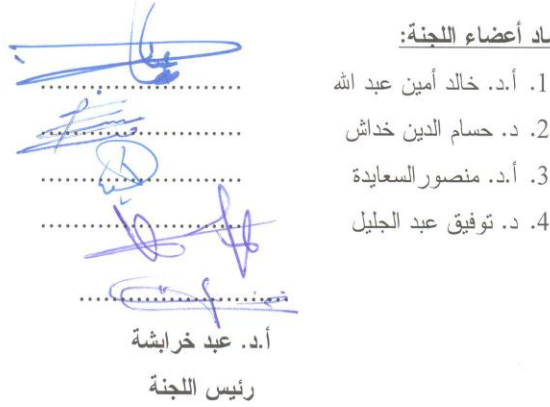 ـاد أعضاء اللجنة:
1. أ.د. خالد أمين عبد الله ..............................
2. د. حسام الدين خداش ..............................
3. أ.د. منصور السعايدة ..............................
4. د. توفيق عبد الجليل ..............................
..............................
أ.د. عبد خرابشة
رئيس اللجنة